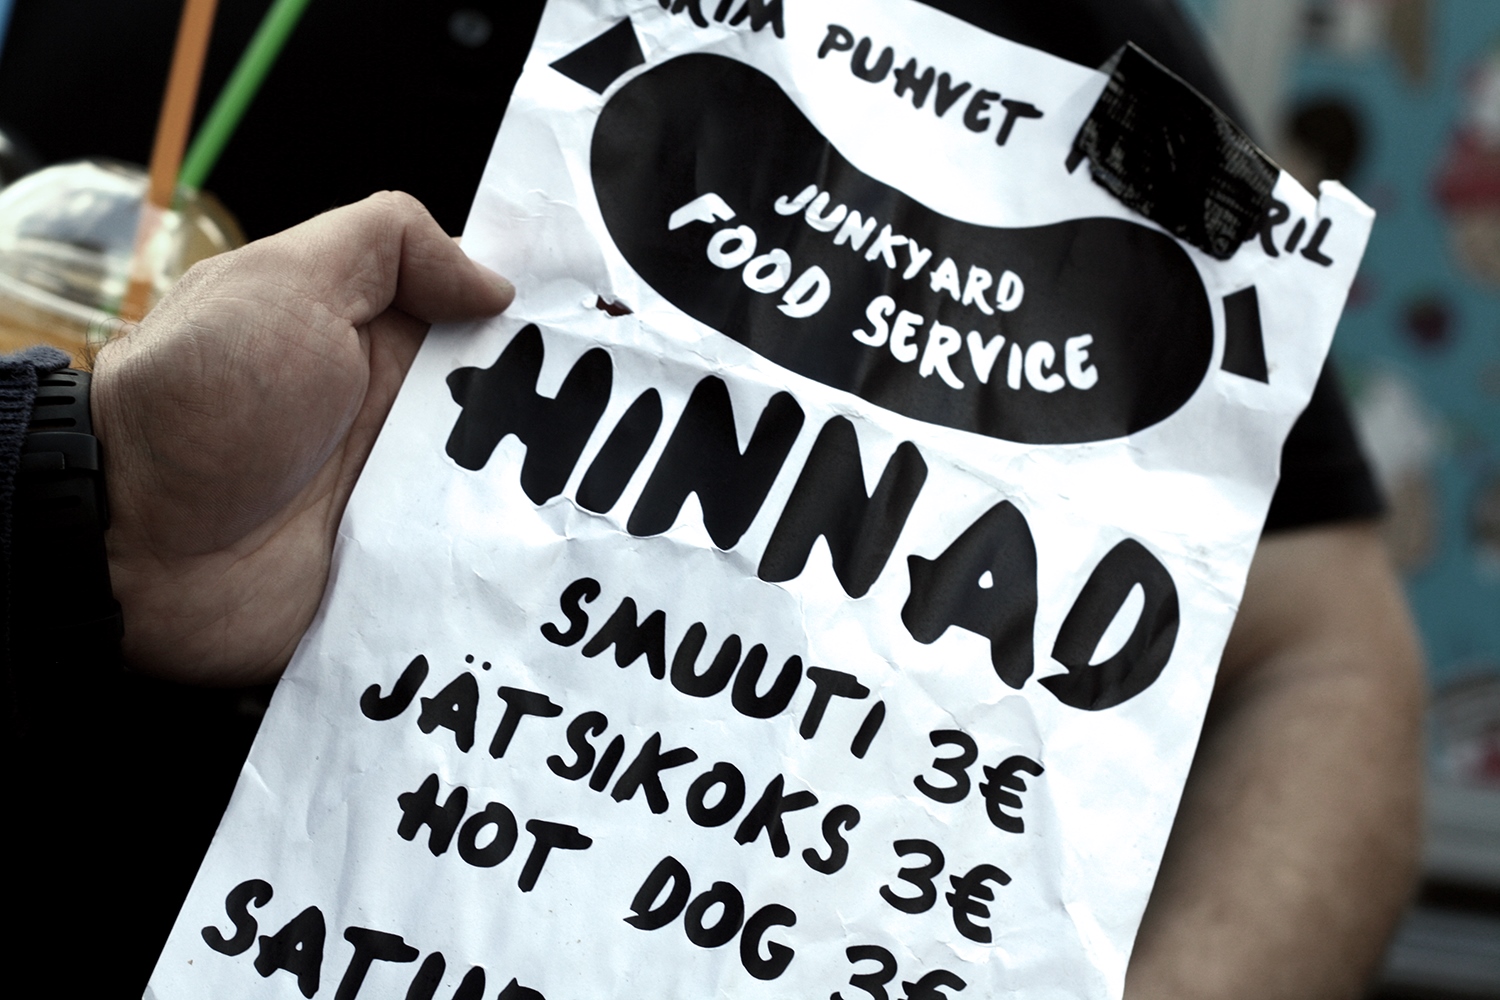 PUHVET
JUNKYARD
FOOD SERVICE
HINNAD
SMUUTI 3€
JÄTSIKOKS 3€
HOT DOG 3€